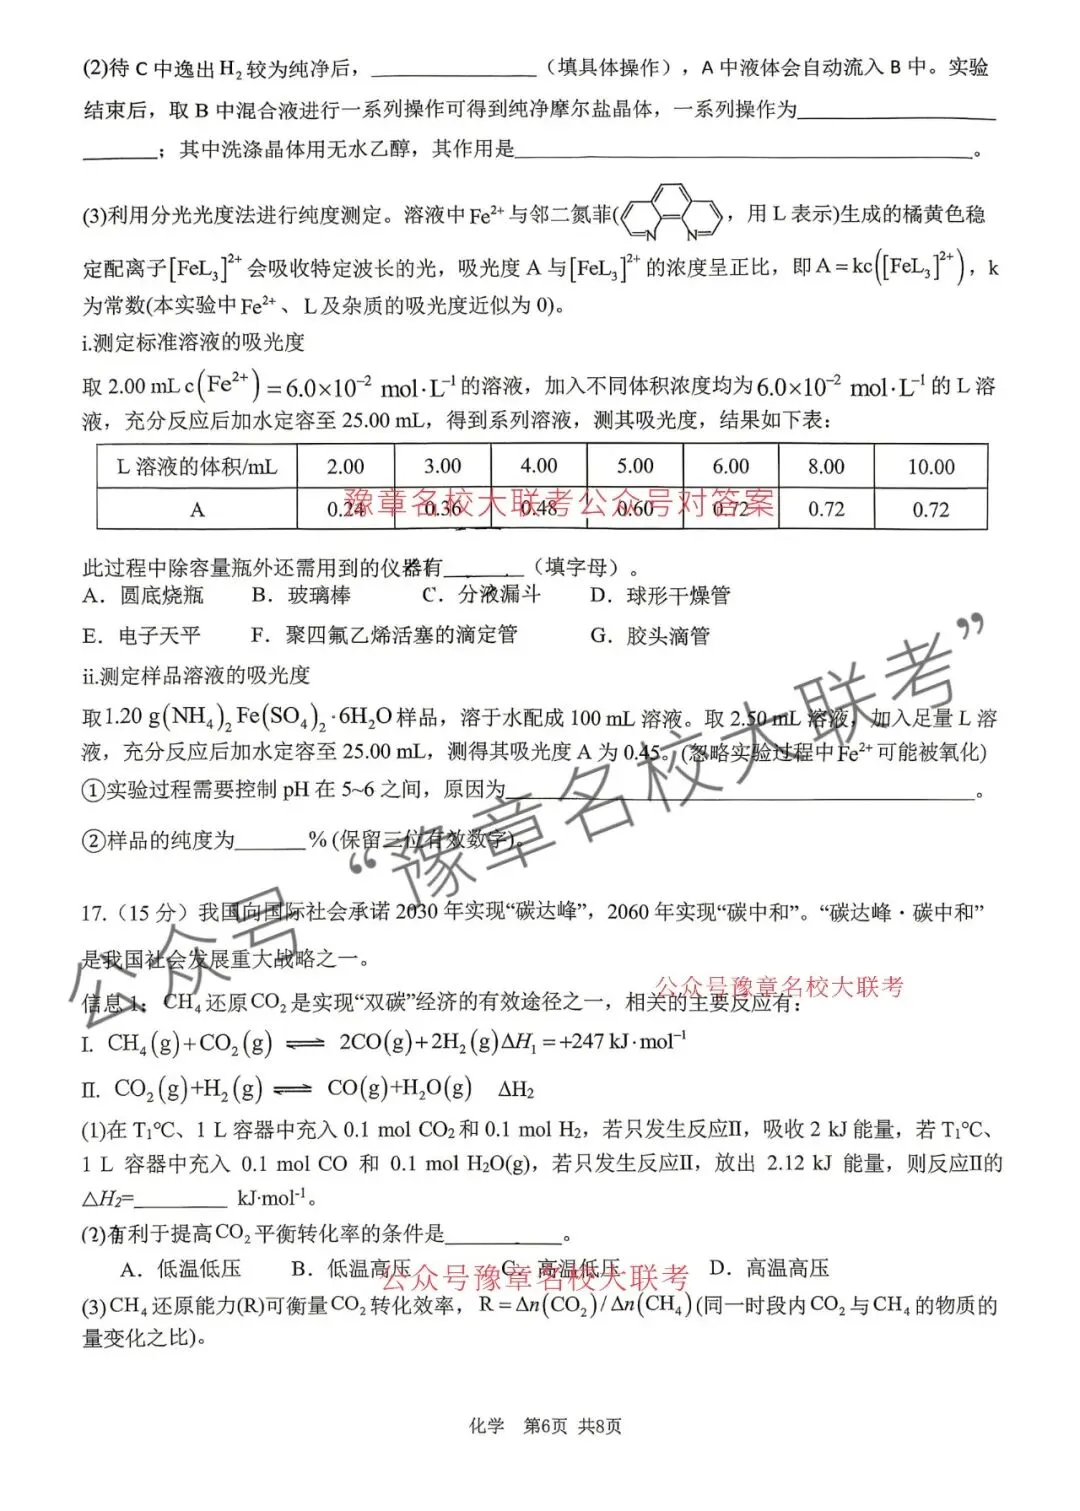 (2)待 C 中逸出 H₂ 较为纯净后，____________（填具体操作），A 中液体会自动流入 B 中。实验
结束后，取 B 中混合液进行一系列操作可得到纯净摩尔盐晶体，一系列操作为____________
______；其中洗涤晶体用无水乙醇，其作用是____________。
(3)利用分光光度法进行纯度测定。溶液中 Fe²⁺ 与邻二氮菲( N N ，用 L 表示)生成的橘黄色稳
定配离子[FeL₃]²⁺ 会吸收特定波长的光，吸光度 A 与[FeL₃]²⁺ 的浓度呈正比，即 A = kc([FeL₃]²⁺)，k
为常数(本实验中 Fe²⁺、 L 及杂质的吸光度近似为 0)。
i.测定标准溶液的吸光度
取 2.00 mL c(Fe²⁺) = 6.0×10⁻² mol·L⁻¹ 的溶液，加入不同体积浓度均为 6.0×10⁻² mol·L⁻¹ 的 L 溶
液，充分反应后加水定容至 25.00 mL，得到系列溶液，测其吸光度，结果如下表：
L 溶液的体积/mL 2.00 3.00 4.00 5.00 6.00 8.00 10.00
A 0.24 0.36 0.48 0.60 0.72 0.72 0.72
豫章名校大联考公众号对答案
此过程中除容量瓶外还需用到的仪器有______（填字母）。
A．圆底烧瓶 B．玻璃棒 C．分液漏斗 D．球形干燥管
E．电子天平 F．聚四氟乙烯活塞的滴定管 G．胶头滴管
ii.测定样品溶液的吸光度
取1.20 g(NH₄)₂Fe(SO₄)₂·6H₂O 样品，溶于水配成 100 mL 溶液。取 2.50 mL 溶液，加入足量 L 溶
液，充分反应后加水定容至 25.00 mL，测得其吸光度 A 为 0.45。(忽略实验过程中 Fe²⁺ 可能被氧化)
①实验过程需要控制 pH 在 5~6 之间，原因为____________。
②样品的纯度为______% (保留三位有效数字)。
公众号“豫章名校大联考”
17.（15 分）我国向国际社会承诺 2030 年实现“碳达峰”，2060 年实现“碳中和”。“碳达峰·碳中和”
是我国社会发展重大战略之一。
公众号豫章名校大联考
信息 1：CH₄ 还原 CO₂ 是实现“双碳”经济的有效途径之一，相关的主要反应有:
I. CH₄(g)+CO₂(g) ⇌ 2CO(g)+2H₂(g) ΔH₁ = +247 kJ·mol⁻¹
II. CO₂(g)+H₂(g) ⇌ CO(g)+H₂O(g) ΔH₂
(1)在 T₁℃、1 L 容器中充入 0.1 mol CO₂ 和 0.1 mol H₂，若只发生反应II，吸收 2 kJ 能量，若 T₁℃、
1 L 容器中充入 0.1 mol CO 和 0.1 mol H₂O(g)，若只发生反应II，放出 2.12 kJ 能量，则反应II的
△H₂=______ kJ·mol⁻¹。
(2)有利于提高 CO₂ 平衡转化率的条件是________。
A．低温低压 B．低温高压 C．高温低压 D．高温高压
公众号豫章名校大联考
(3) CH₄ 还原能力(R)可衡量 CO₂ 转化效率， R = Δn(CO₂) / Δn(CH₄) (同一时段内 CO₂ 与 CH₄ 的物质的
量变化之比)。
化学 第6页 共8页